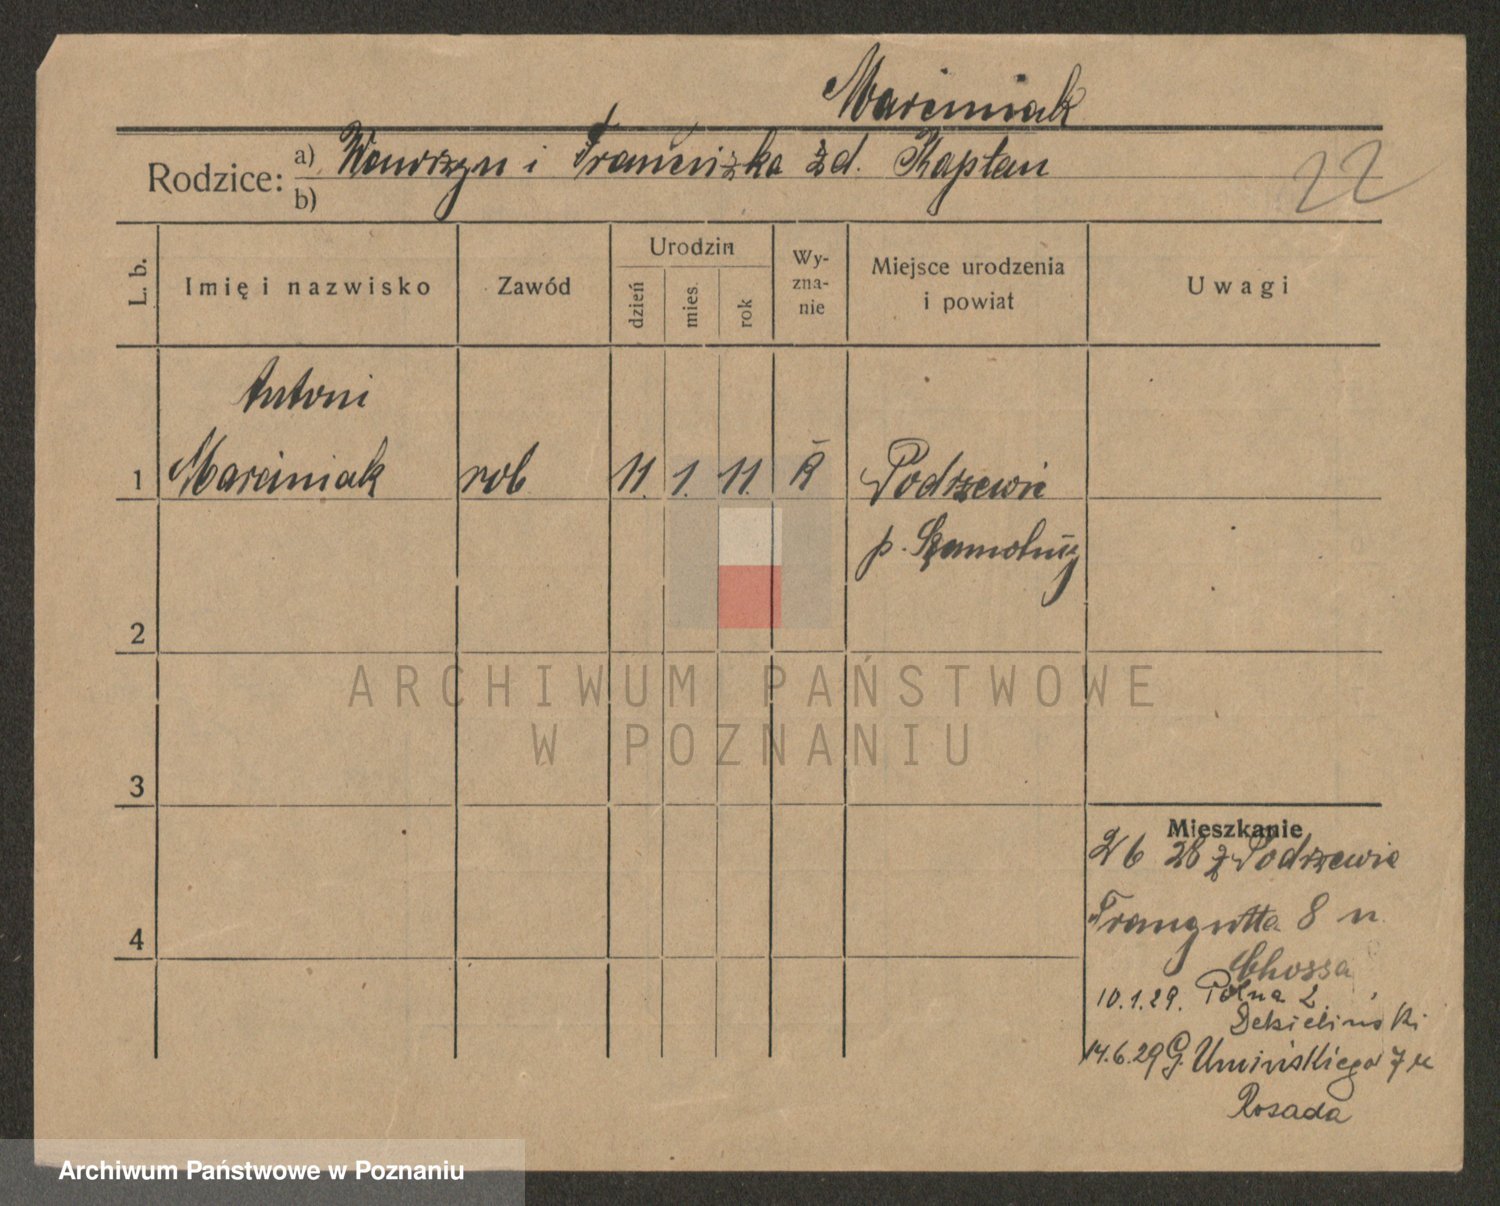 Marciniak
Rodzice: a) Wawrzyn i Franciszka zd. Kapłan
b)
22
L. b.
Imię i nazwisko
Zawód
Urodzin
dzień
mies.
rok
Wy-
zna-
nie
Miejsce urodzenia
i powiat
Uwagi
Antoni
1 Marciniak rob 11. 1. 11. R Podrzewie
p. Szamotuły
2
3
4
Mieszkanie
28 z Podrzewie
Traugutta 8 u
Chossa
10.1.29. Polna 2
14.6.29 G. Umińskiego 7 u
Rosada
ARCHIWUM PAŃSTWOWE
W POZNANIU
Archiwum Państwowe w Poznaniu